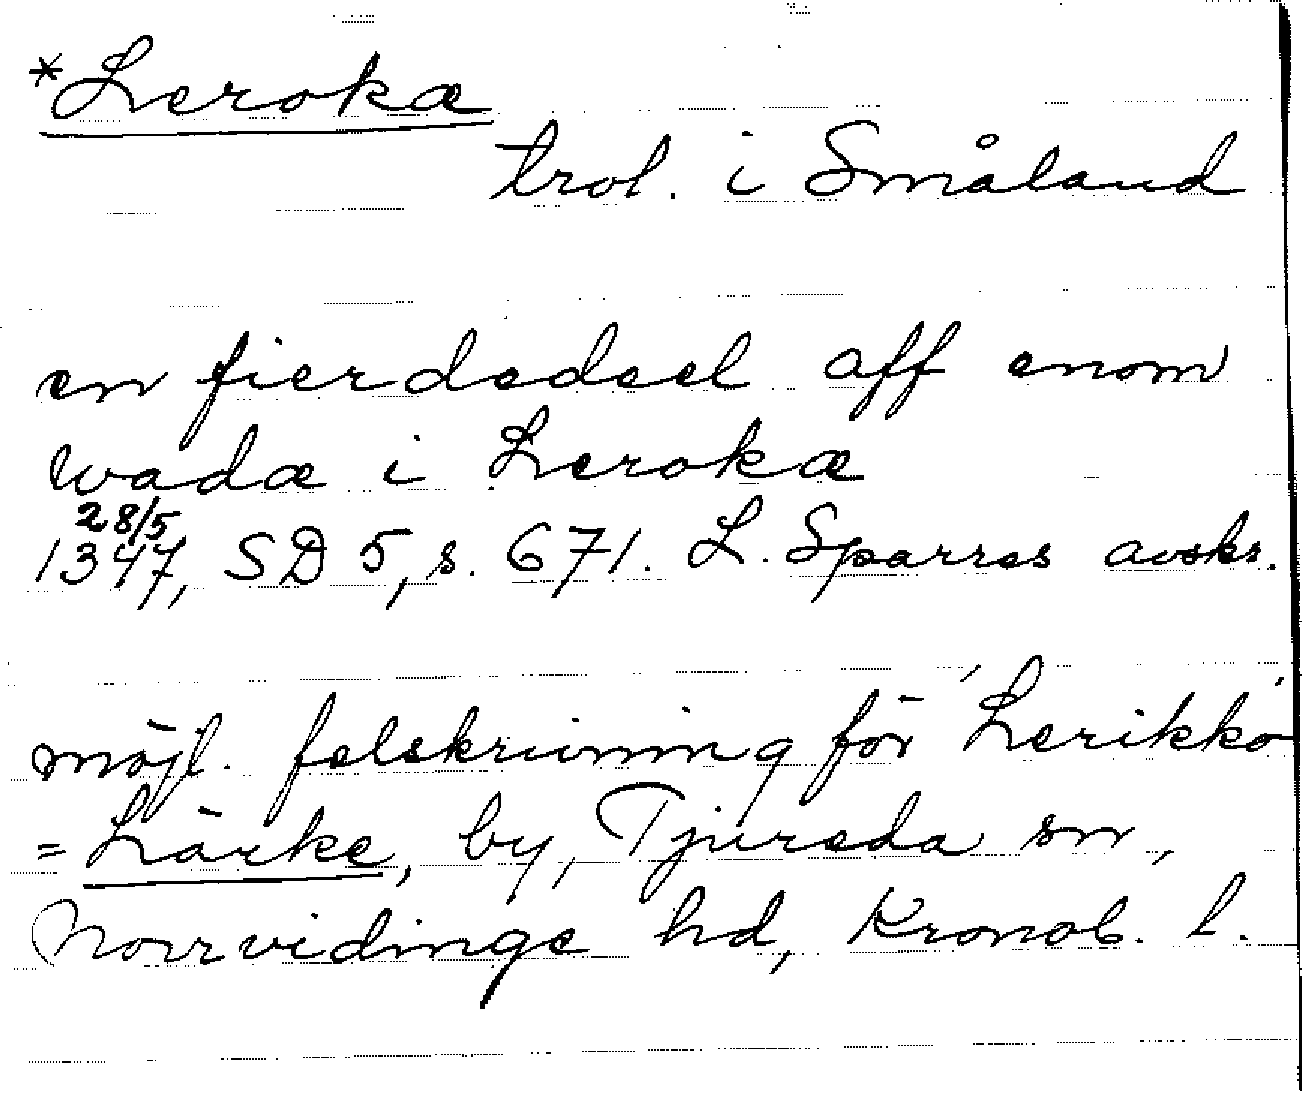 *Leroka
trol. i Småland
en fierdedeel aff enom
wada i Leroka
28/5
1347, SD 5, s. 671. L. Sparres avskr.
möjl. felskrivning för 'Lerikko'
= Lärke, by, Tjureda sn,
Norrvidinge hd, Kronob. l.